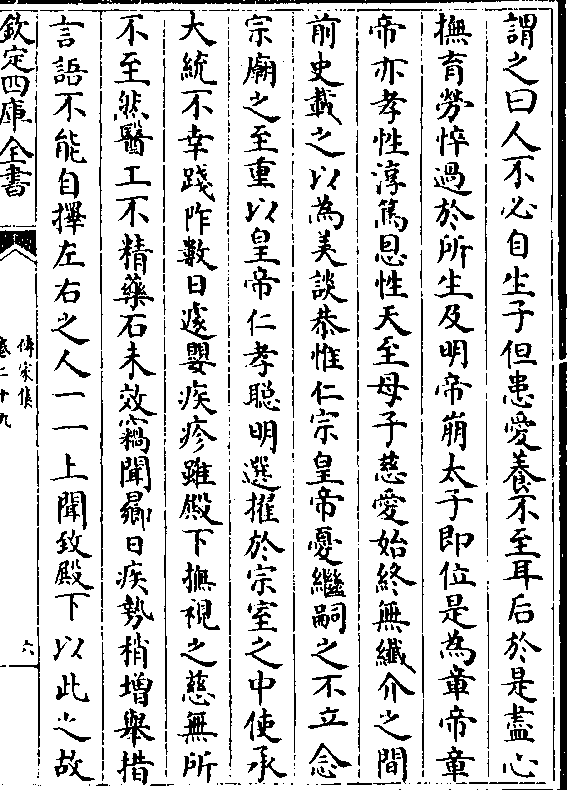 謂之曰人不必自生子但患愛養不至耳后於是盡心
撫育勞悴過於所生及明帝崩太子即位是為章帝章
帝亦孝性淳篤恩性天至母子慈愛始終無纖介之間
前史載之以為美談恭惟仁宗皇帝憂繼嗣之不立念
宗廟之至重以皇帝仁孝聰明選擢於宗室之中使承
大統不幸踐阼數日遽嬰疾疹雖殿下撫視之慈無所
不至然醫工不精藥石未效竊聞曏日疾勢稍增舉措
言語不能自擇左右之人一一上聞致殿下以此之故
欽定四庫全書
傳家集
卷二十九
六